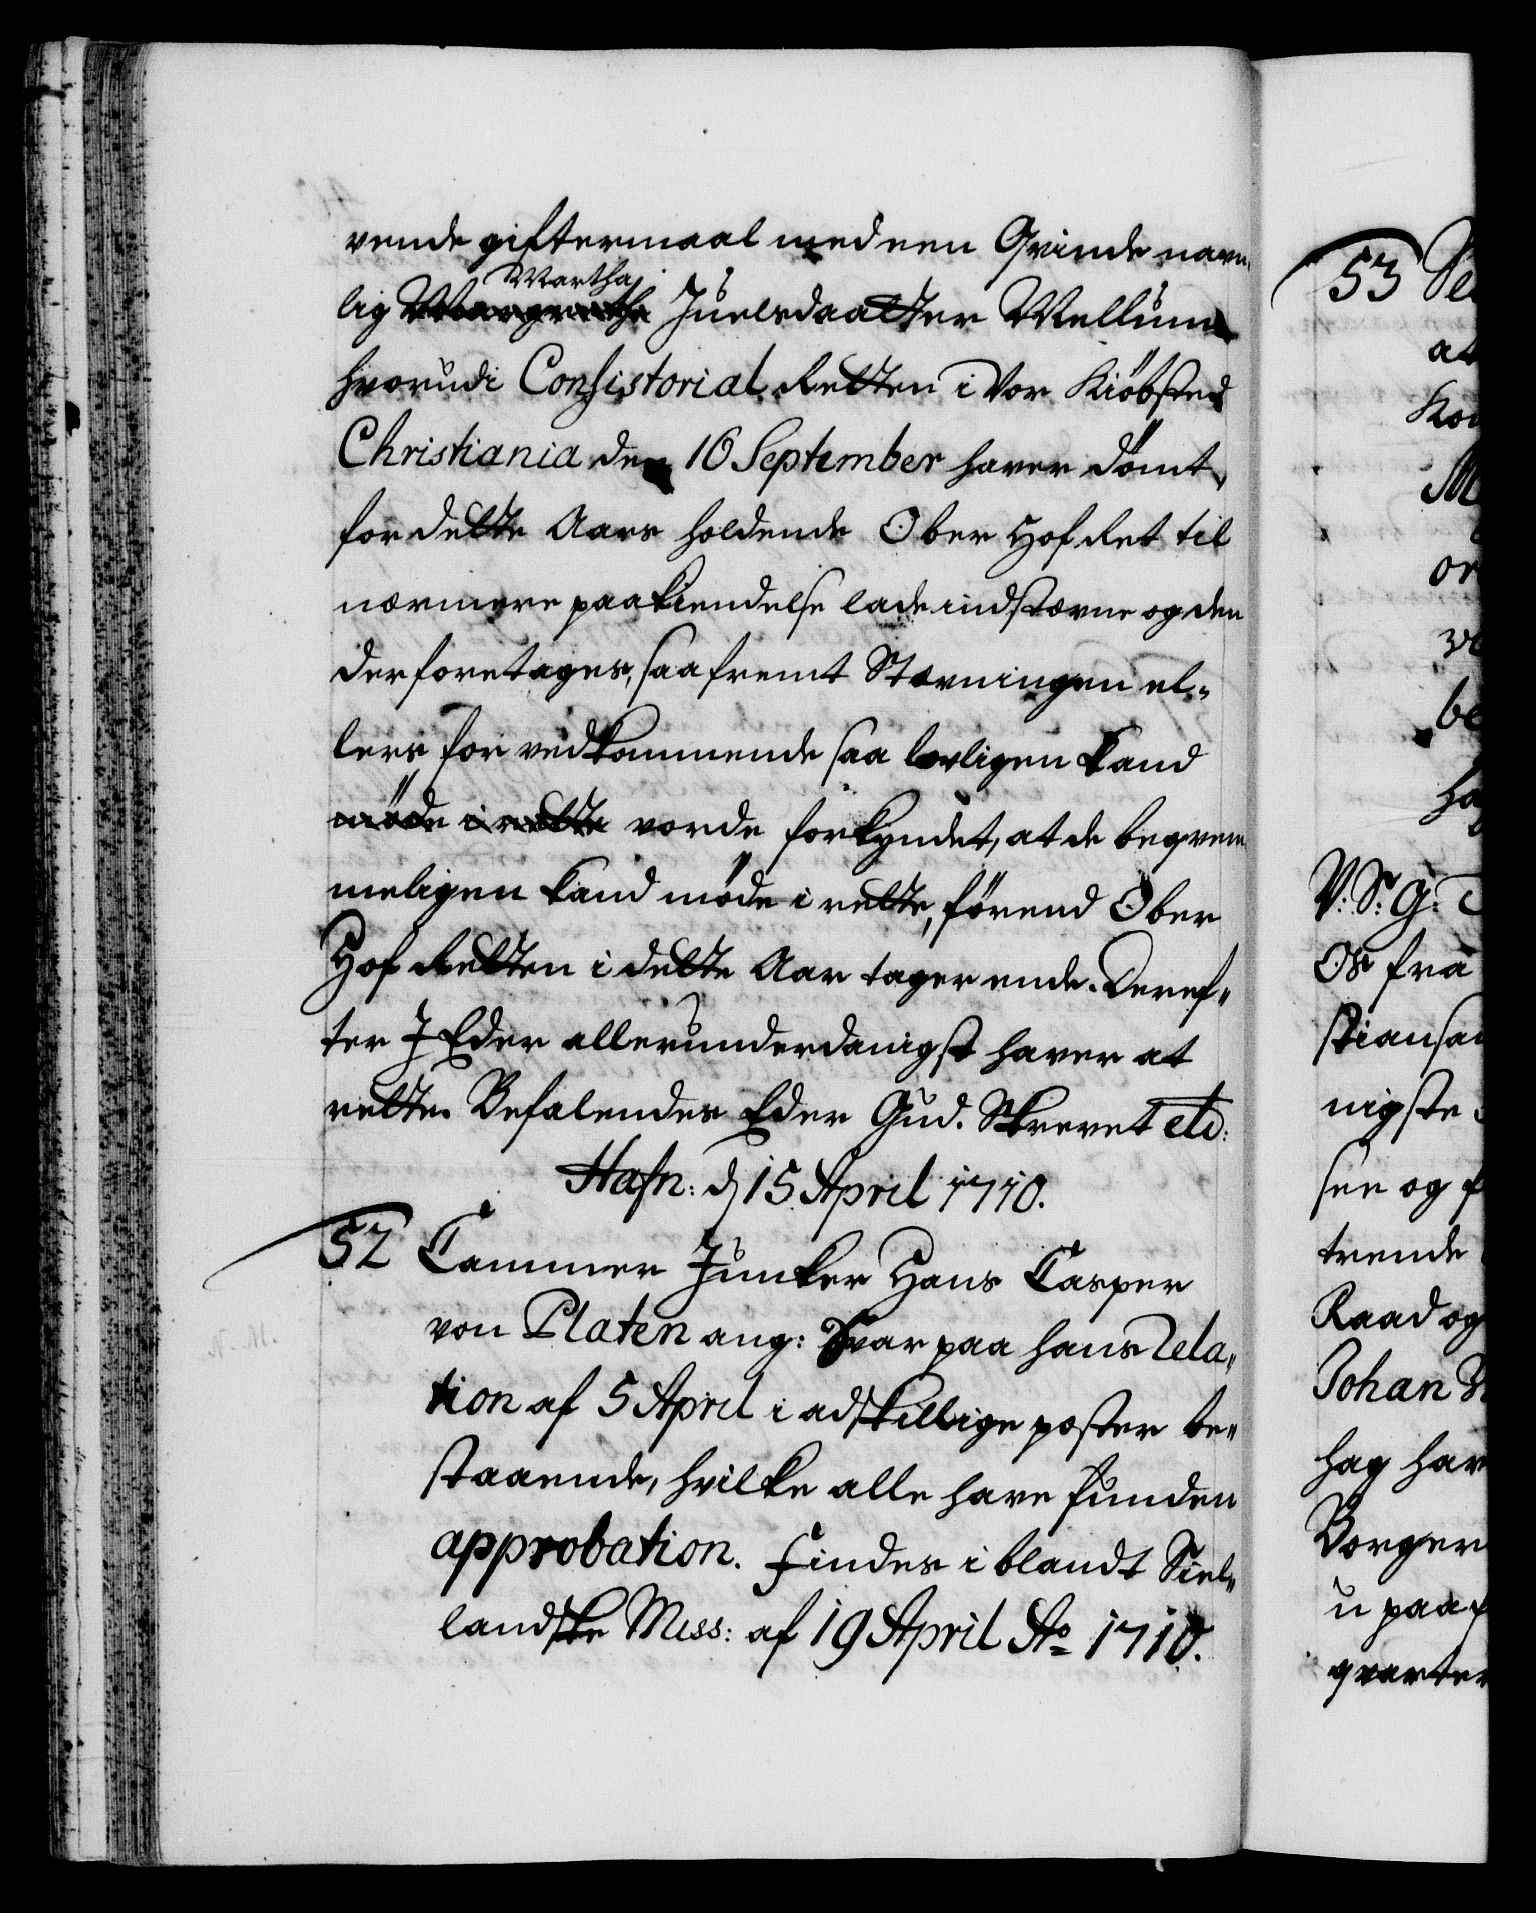 vende giftermaal med een Qvinde navn,
lig Margrethe Martha Juelsdaatter Mellum
hvorudi Consistorial Retten i Vor Kiöbsted
Christiania den 16 September haver dömt,
for dette Aars holdende Ober Hof Ret til
nærmere paakiendelse lade indstævne og den
der foretages, saafremt Stævningen el„
lers for vedkommende saa lovligen kand
möde i rette vorde forkyndet, at de beqvem
meligen kand möde i rette, förend Ober
Hof Retten i dette Aar tager ende. Deref„
ter I Eder allerunderdanigst haver at
rette. Befalendes Eder Gud. Skrevet etc:
Hafn: d 15 April 1710.
52 Cammer Junker Hans Casper
von Platen ang: Svar paa hans Rela„
tion af 5 April i adskillige poster be„
staaende, hvilke alle have funden
approbation. Findes i blandt Siel„
landske Miss: af 19 April Ao 1710.
53
at
V: S: G:
Os fra
stiansan
nigste
see og
trende
Raad og
Johan
hag har
Borger
u paa
qvarter